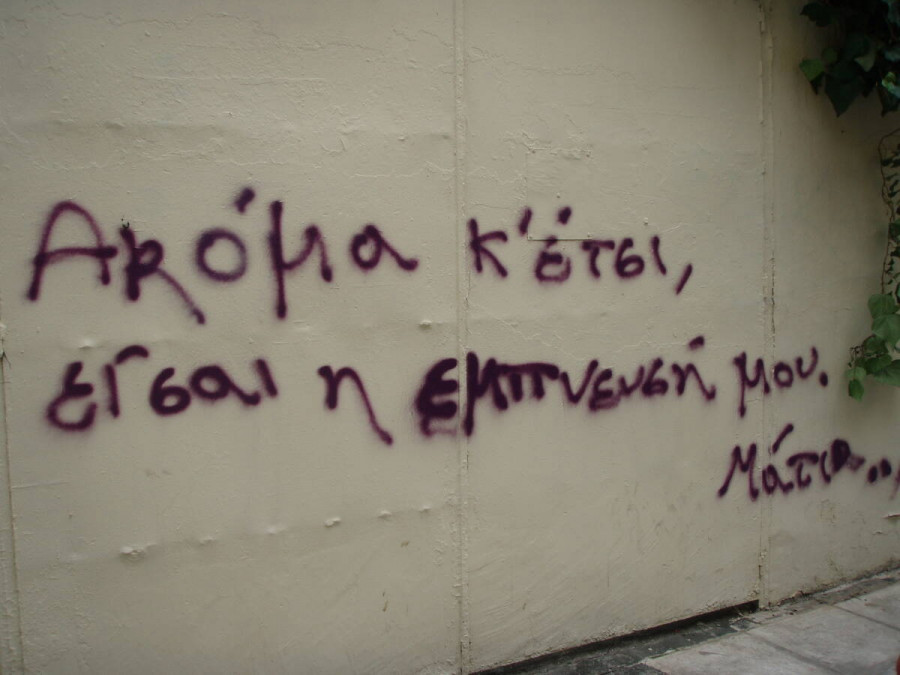 Ακόμα κ' έτσι,
είσαι η εμπνευσή μου.
Μάτια...